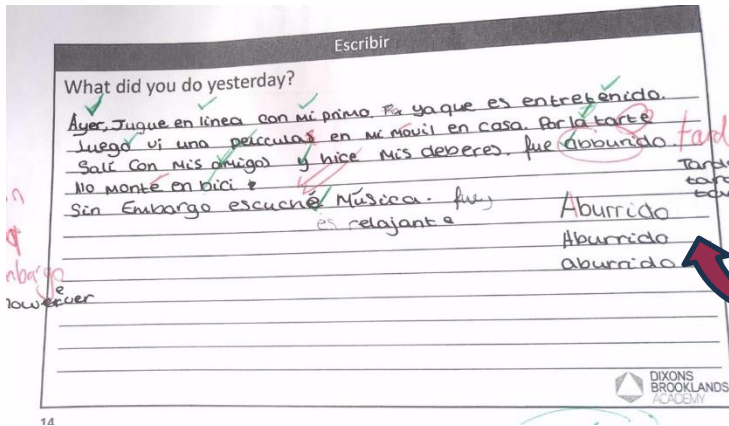 Escribir
What did you do yesterday?
Ayer, Jugue en línea con mi primo. ya que es entretenido.
Juego vi una peicculas en mi móvil en casa. Por la tarte
Salí con mis amigos y hice mis deberes. fue abburido
tard
No monté en bici
Sin Embargo escuché Música. fue
es relajante
Aburrido
Aburrido
aburrido
DIXONS
BROOKLANDS
ACADEMY
14